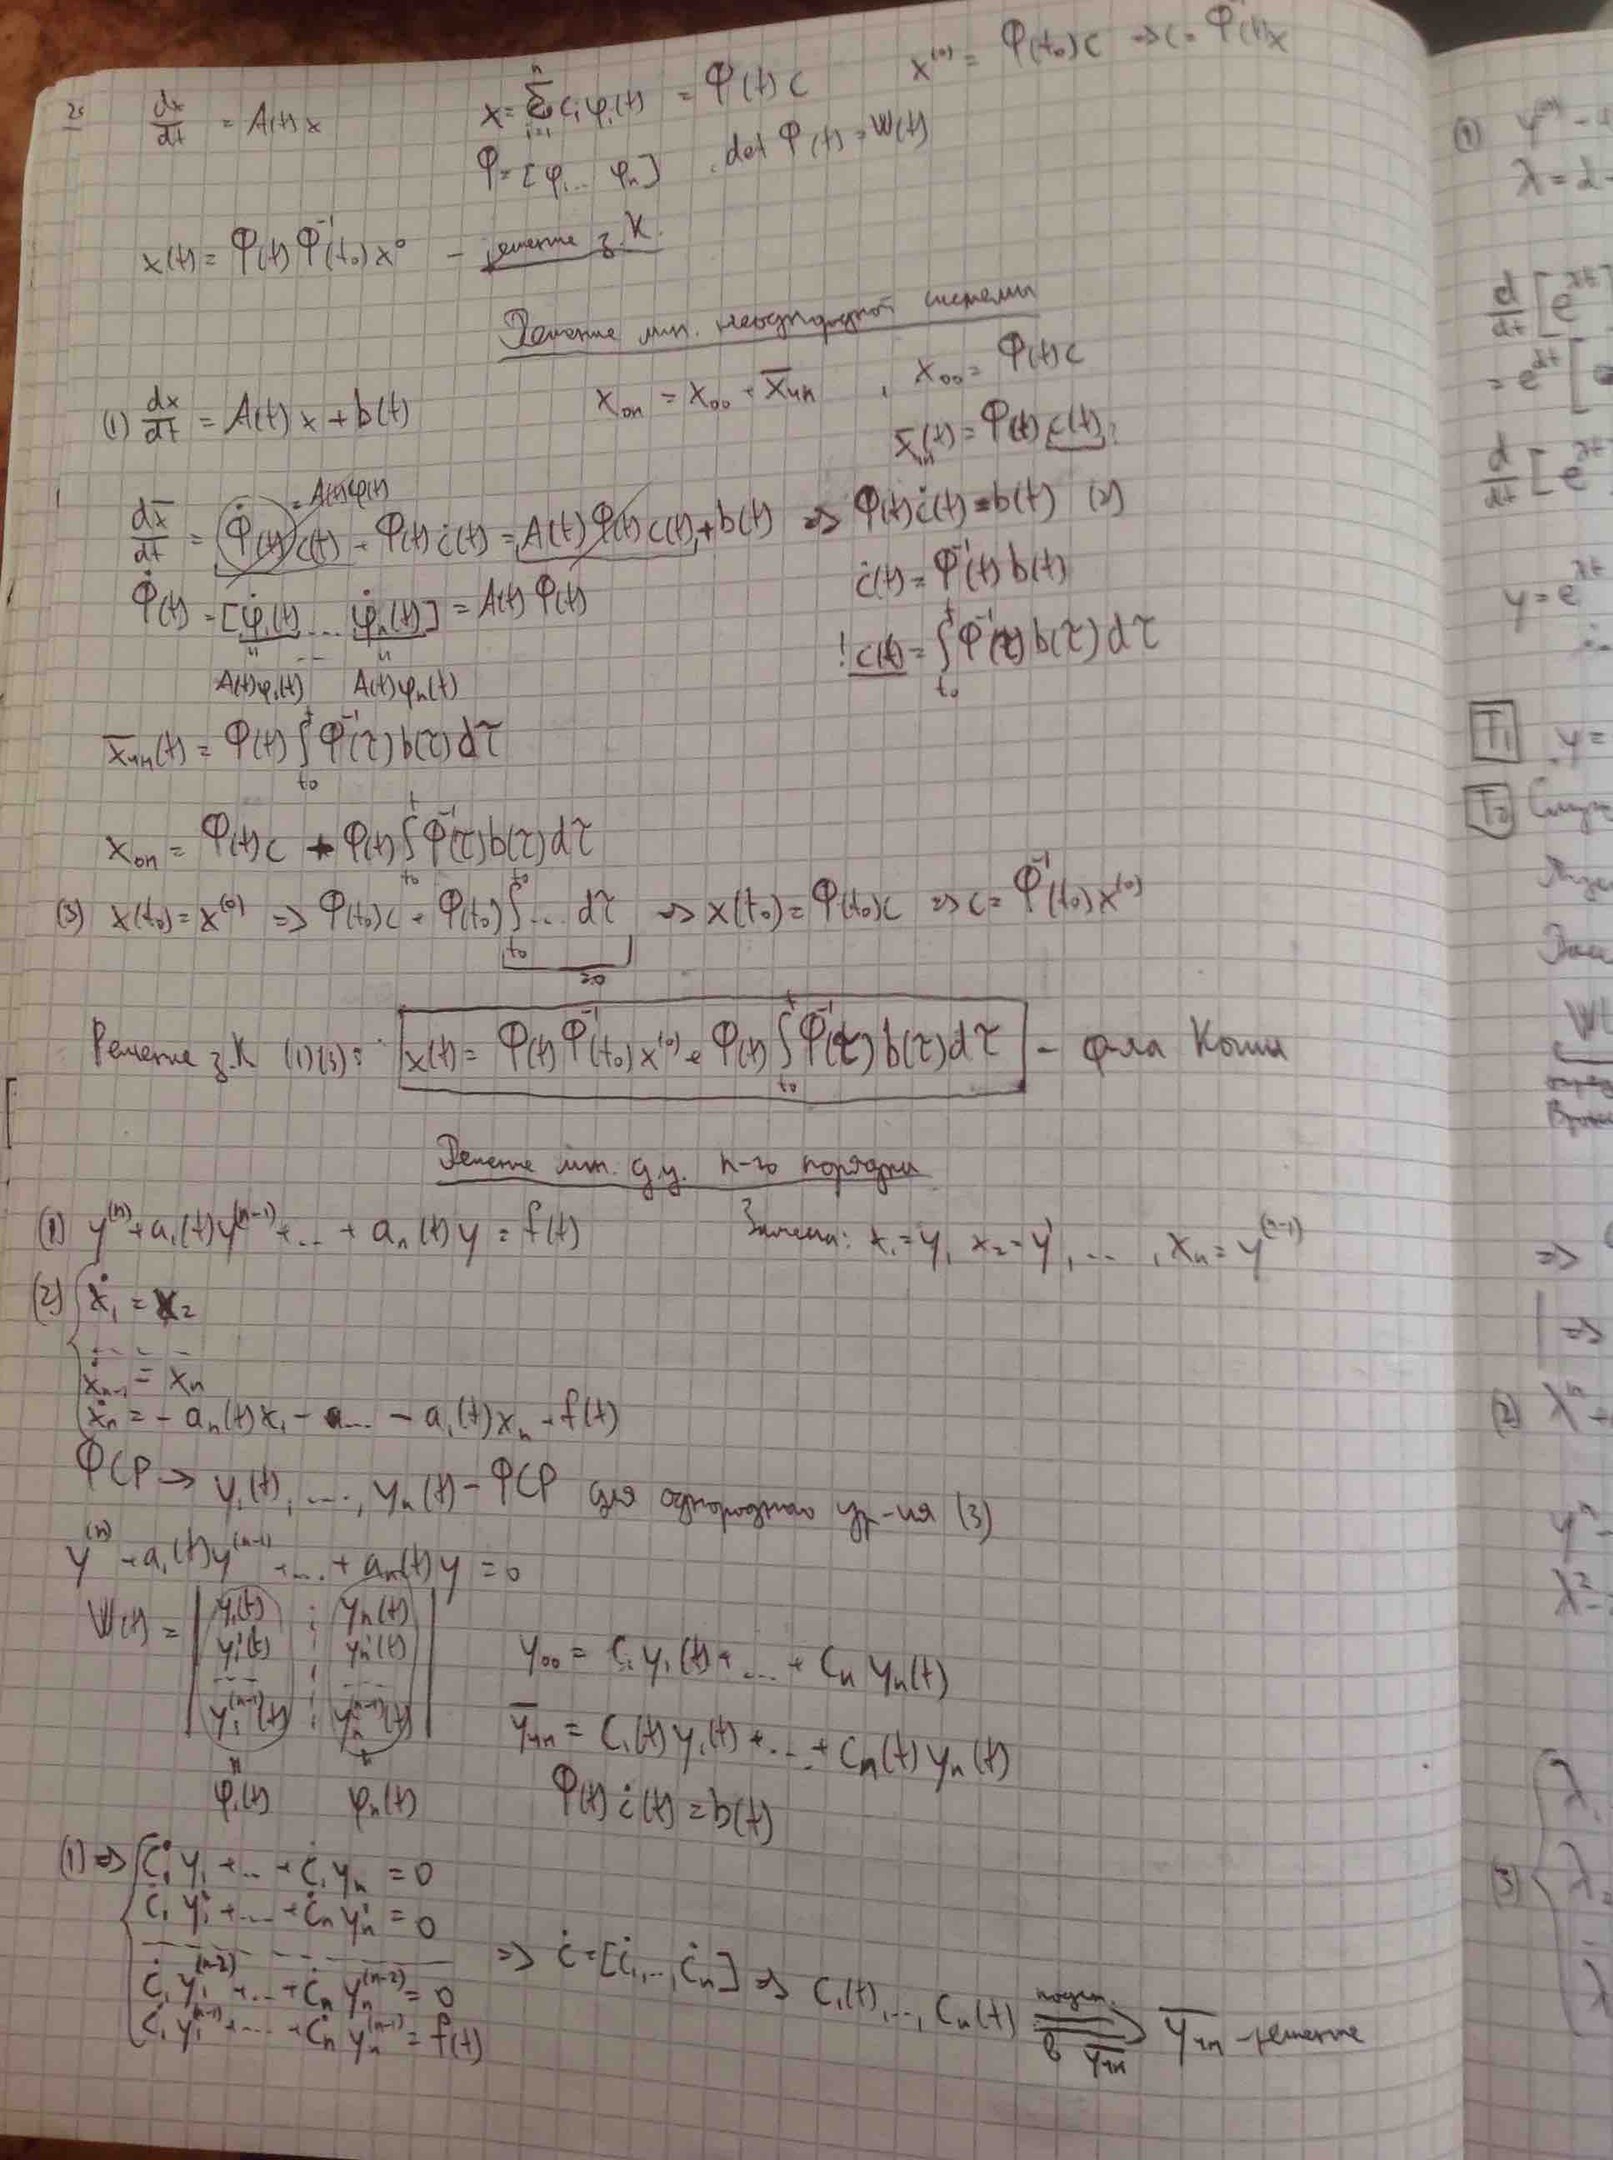 25 dx/dt = A(t)x x = ∑_{i=1}^{n} c_i φ_i(t) = Φ(t)c x^(0) = Φ(t_0)c => c = Φ^{-1}(t)x
Φ = [φ_1 ... φ_n], det Φ(t) = W(t)
x(t) = Φ(t)Φ^{-1}(t_0)x^0 - решение з.К.
Решение лин. неоднородной системы
(1) dx/dt = A(t)x + b(t) x_он = x_оо + x̄_чн, x_оо = Φ(t)c
x̄_чн(t) = Φ(t)c(t)?
dx̄/dt = Φ̇(t)c(t) + Φ(t)ċ(t) = A(t)Φ(t)c(t) + b(t) => Φ(t)ċ(t) = b(t) (2)
= A(t)Φ(t)
Φ̇(t) = [φ̇_1(t) ... φ̇_n(t)] = A(t)Φ(t) ċ(t) = Φ^{-1}(t)b(t)
A(t)φ_1(t) ... A(t)φ_n(t) ! c(t) = ∫_{t_0}^{t} Φ^{-1}(τ)b(τ)dτ
x̄_чн(t) = Φ(t)∫_{t_0}^{t} Φ^{-1}(τ)b(τ)dτ
x_он = Φ(t)c + Φ(t)∫_{t_0}^{t} Φ^{-1}(τ)b(τ)dτ
(3) x(t_0) = x^(0) => Φ(t_0)c + Φ(t_0)∫_{t_0}^{t_0} ... dτ => x(t_0) = Φ(t_0)c => c = Φ^{-1}(t_0)x^(0)
=0
Решение з.К (1)(3): x(t) = Φ(t)Φ^{-1}(t_0)x^(0) + Φ(t)∫_{t_0}^{t} Φ^{-1}(τ)b(τ)dτ - ф-ла Коши
Решение лин. д.у. n-го порядка
(1) y^(n) + a_1(t)y^(n-1) + ... + a_n(t)y = f(t) Замена: x_1 = y, x_2 = y', ..., x_n = y^(n-1)
(2) { ẋ_1 = x_2
- - - -
ẋ_{n-1} = x_n
ẋ_n = -a_n(t)x_1 - ... - a_1(t)x_n + f(t)
ФСР => y_1(t), ..., y_n(t) - ФСР для однородного ур-ия (3)
y^(n) + a_1(t)y^(n-1) + ... + a_n(t)y = 0
W(t) = | y_1(t) ⋮ y_n(t) |
| y_1'(t) ⋮ y_n'(t) | y_оо = C_1 y_1(t) + ... + C_n y_n(t)
| --- ⋮ --- |
| y_1^(n-1)(t) ⋮ y_n^(n-1)(t) | ȳ_чн = C_1(t)y_1(t) + ... + C_n(t)y_n(t)
φ_1(t) φ_n(t) Φ(t)ċ(t) = b(t)
(1) => { ċ_1 y_1 + ... + ċ_1 y_n = 0
ċ_1 y_1' + ... + ċ_n y_n' = 0
- - - - - - => ċ = [ċ_1, ..., ċ_n] => C_1(t), ..., C_n(t) => подст. в ȳ_чн ȳ_чн - решение
ċ_1 y_1^(n-2) + ... + ċ_n y_n^(n-2) = 0
ċ_1 y_1^(n-1) + ... + ċ_n y_n^(n-1) = f(t)
(1) y^(n)
λ = α
d/dt [e^{λt}
= e^{λt} [
d/dt [e^{λt}
y = e^{λt}
T_1 y =
T_2
=>
=>
(2) λ^n +
y^n -
λ^2 -
(3) { λ_1
λ_2